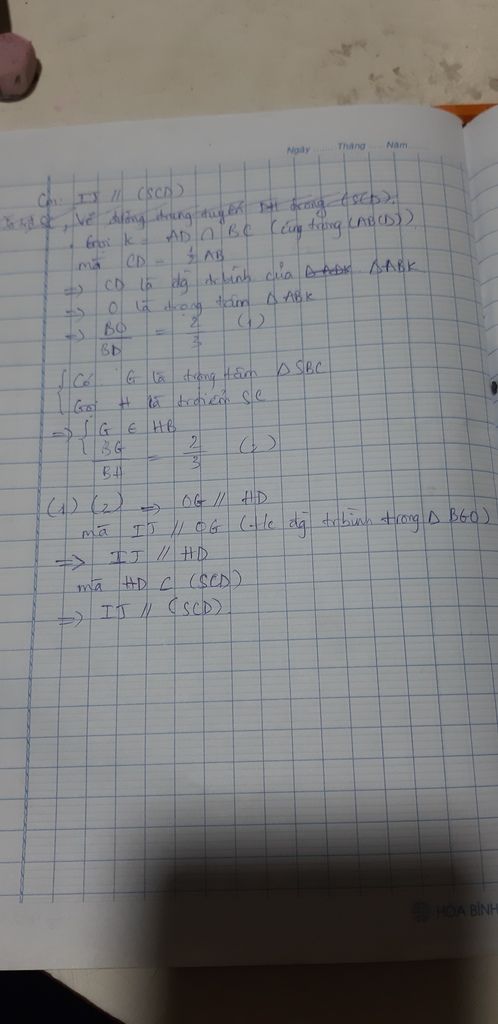 Ngày ...... Tháng ..... Năm .....
Cm: IJ // (SCD)
, Vẽ đường trung tuyến trong (SCD).
. Gọi K = AD ∩ BC (cùng trong (ABCD))
mà CD = 1/2 AB
=> CD là đg tr bình của ΔADK ΔABK
=> O là trọng tâm ΔABK
=> BO/BD = 2/3 (1)
{ Có G là trọng tâm ΔSBC
Gọi H là tr điểm SC
=> { G ∈ HB
BG/BH = 2/3 (2)
(1) (2) => OG // HD
mà IJ // OG (t/c đg tr bình trong Δ BGO)
=> IJ // HD
mà HD ⊂ (SCD)
=> IJ // (SCD).
HÒA BÌNH